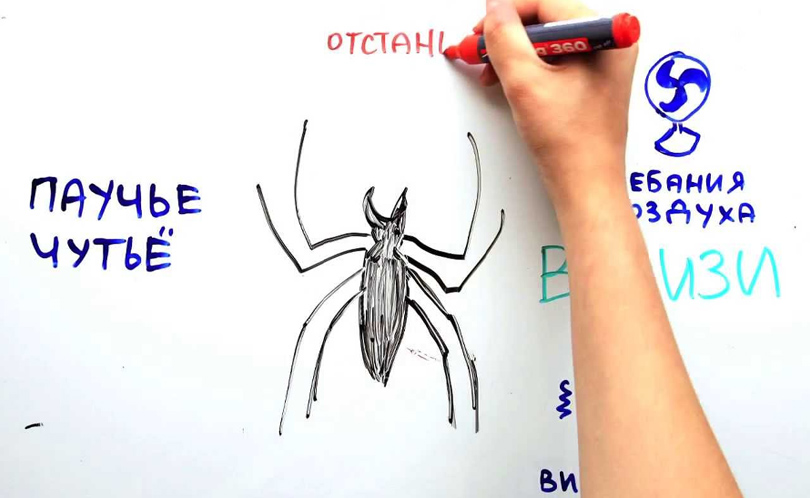 ОТСТАНЬ
ПАУЧЬЕ
ЧУТЬЁ
ЕБАНИЯ
ОЗДУХА
ВИ
360